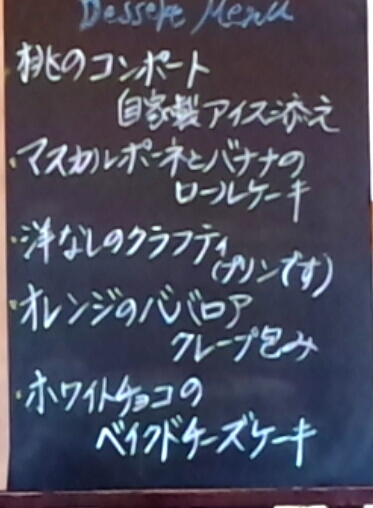 Dessert Menu
・桃のコンポート
自家製アイス添え
・マスカルポーネとバナナの
ロールケーキ
・洋なしのクラフティ
(プリンです)
・オレンジのババロア
クレープ包み
・ホワイトチョコの
ベイクドチーズケーキ